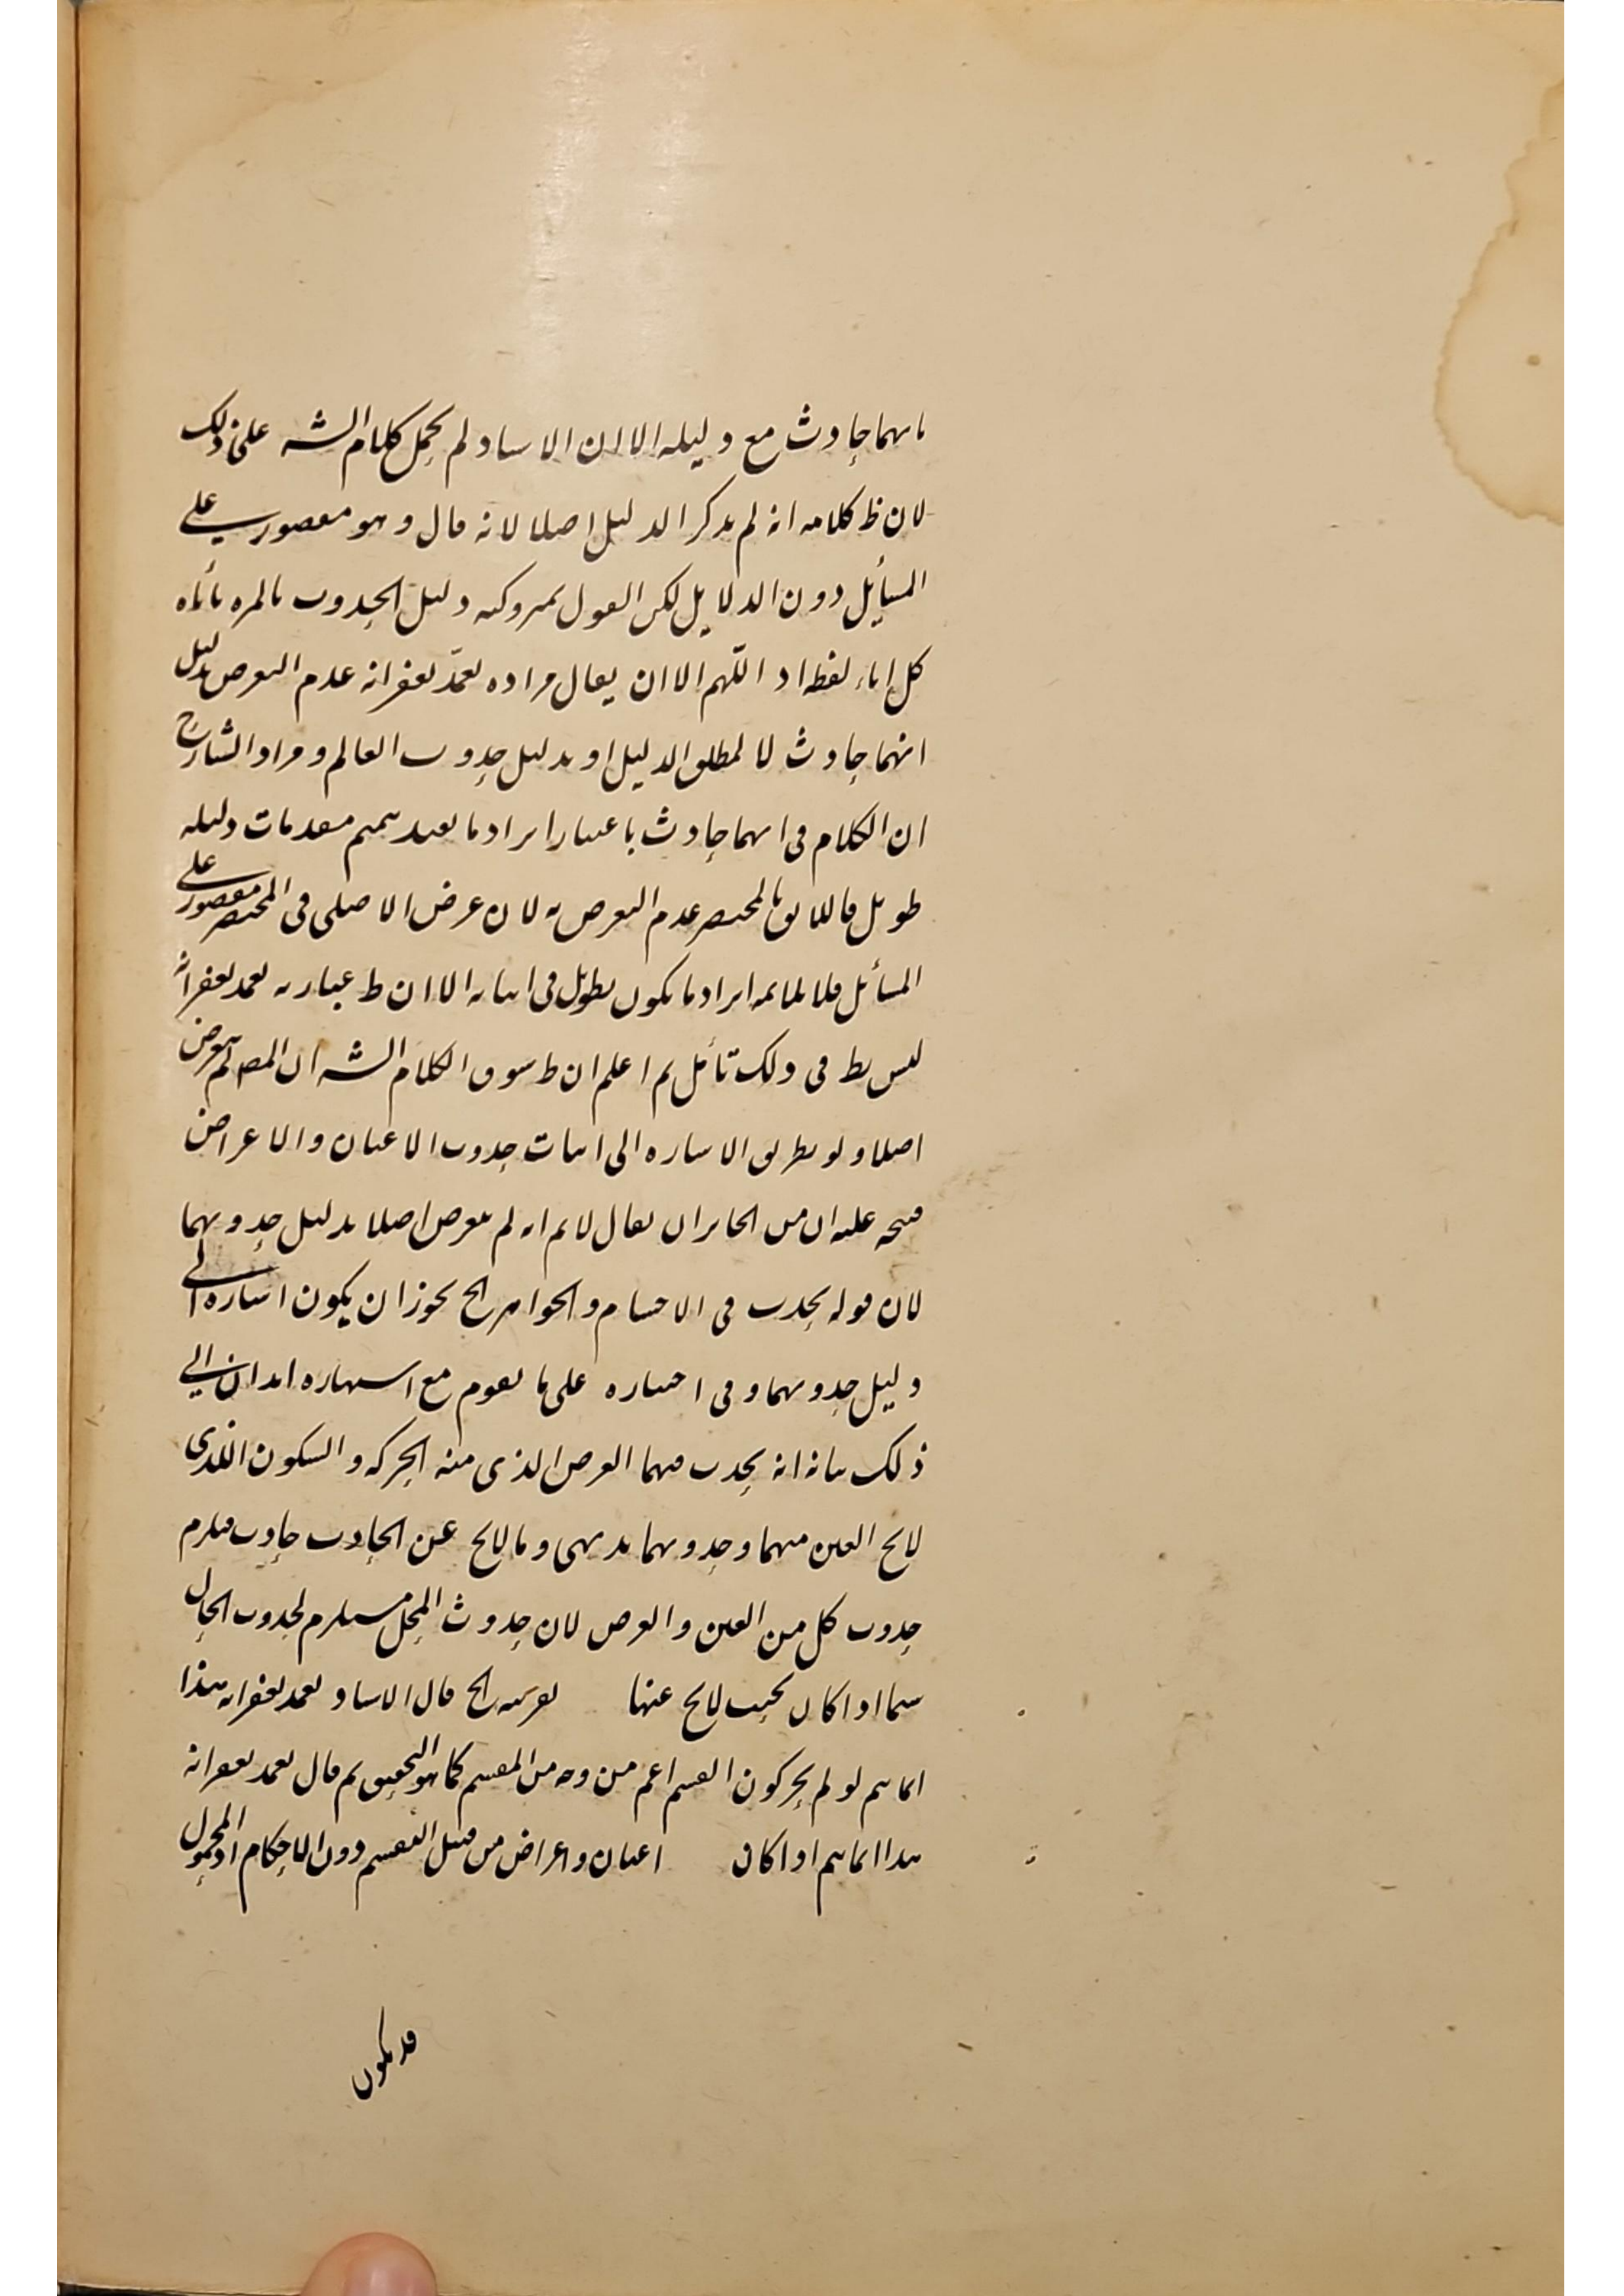 بانهما حادث مع دليله الا ان الاستاد لم يحمل كلام الشه على ذلك
لان ظ كلامه انه لم يذكر الدليل اصلا لانه قال وهو مقصور على
المسأيل دون الدلايل لكن القول بمتروكيه دليل الحدوث بالمره يأباه
كل اباء لفظه اد اللّهم الا ان يقال مراده تعمّد بغفرانه عدم التعرض بدليل
انهما حادث لا لمطلق الدليل او بدليل حدوث العالم ومراد الشارح
ان الكلام فى انهما حادث باعتبار ايراد ما يفيد تتميم مقدمات دليله
طويل فاللايق بالمختصر عدم التعرض به لان غرض الاصلى فى المختصر مقصور على
المسأئل فلا يلايمه ايراد ما يكون يطول فى اثباته الا ان ظ عبارته تعمد بغفرانه
ليس بظ فى ذلك تأمل ثم اعلم ان ظ سوق الكلام الشه ان المص لم يتعرض
اصلا ولو بطريق الاشاره الى اثبات حدوث الاعيان والاعراض
فيتجه عليه ان من الجايز ان يقال لا نم انه لم يتعرض اصلا بدليل حدوثهما
لان قوله يحدث فى الاجسام والجواهر الخ يجوز ان يكون اشاره الى
دليل حدوثهما وفى اختياره على ما يقوم مع اشتهاره ايذان الي
ذلك بيانه انه يحدث فيهما العرض الذى منه الحركه والسكون اللذى
لايخ العين منهما وحدوثهما بديهى وما لايخ عن الحادث حادث فيلزم
حدوث كل من العين والعرض لان حدوث المحل مستلزم لحدوث الحال
سيما اذا كان بحيث لايخ عنها بقرينه الخ قال الاستاد تعمد بغفرانه هذا
انما يتم لو لم يجز كون القسم اعم من وجه من المقسم كما هو التحقيق ثم قال تعمد بغفرانه
هذا انما يتم اذا كان اعيان واعراض من قبيل التقسيم دون الاحكام اذ المحمول
قد يكون